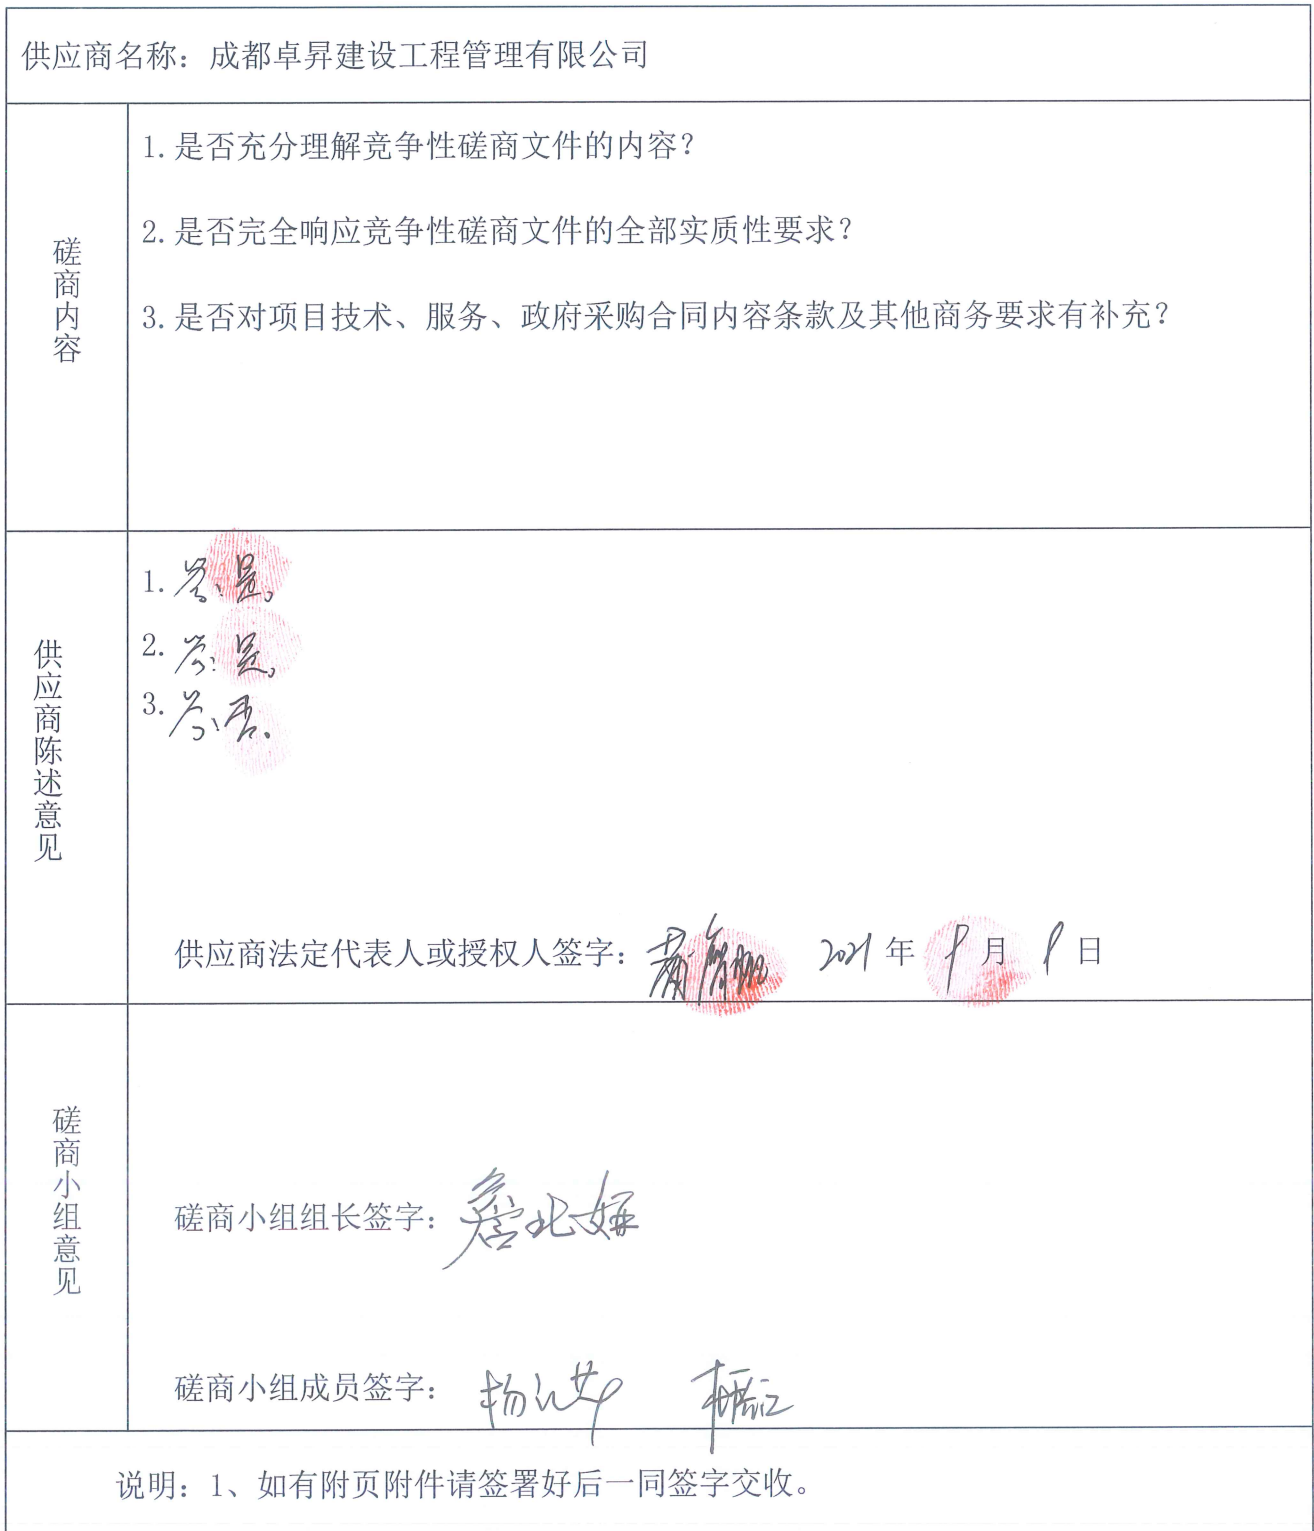 供应商名称：成都卓昇建设工程管理有限公司
磋商内容
1.是否充分理解竞争性磋商文件的内容？
2.是否完全响应竞争性磋商文件的全部实质性要求？
3.是否对项目技术、服务、政府采购合同内容条款及其他商务要求有补充？
供应商陈述意见
1.答：是。
2.答：是。
3.答：否。
供应商法定代表人或授权人签字： 2021年9月9日
磋商小组意见
磋商小组组长签字：
磋商小组成员签字：
说明：1、如有附页附件请签署好后一同签字交收。